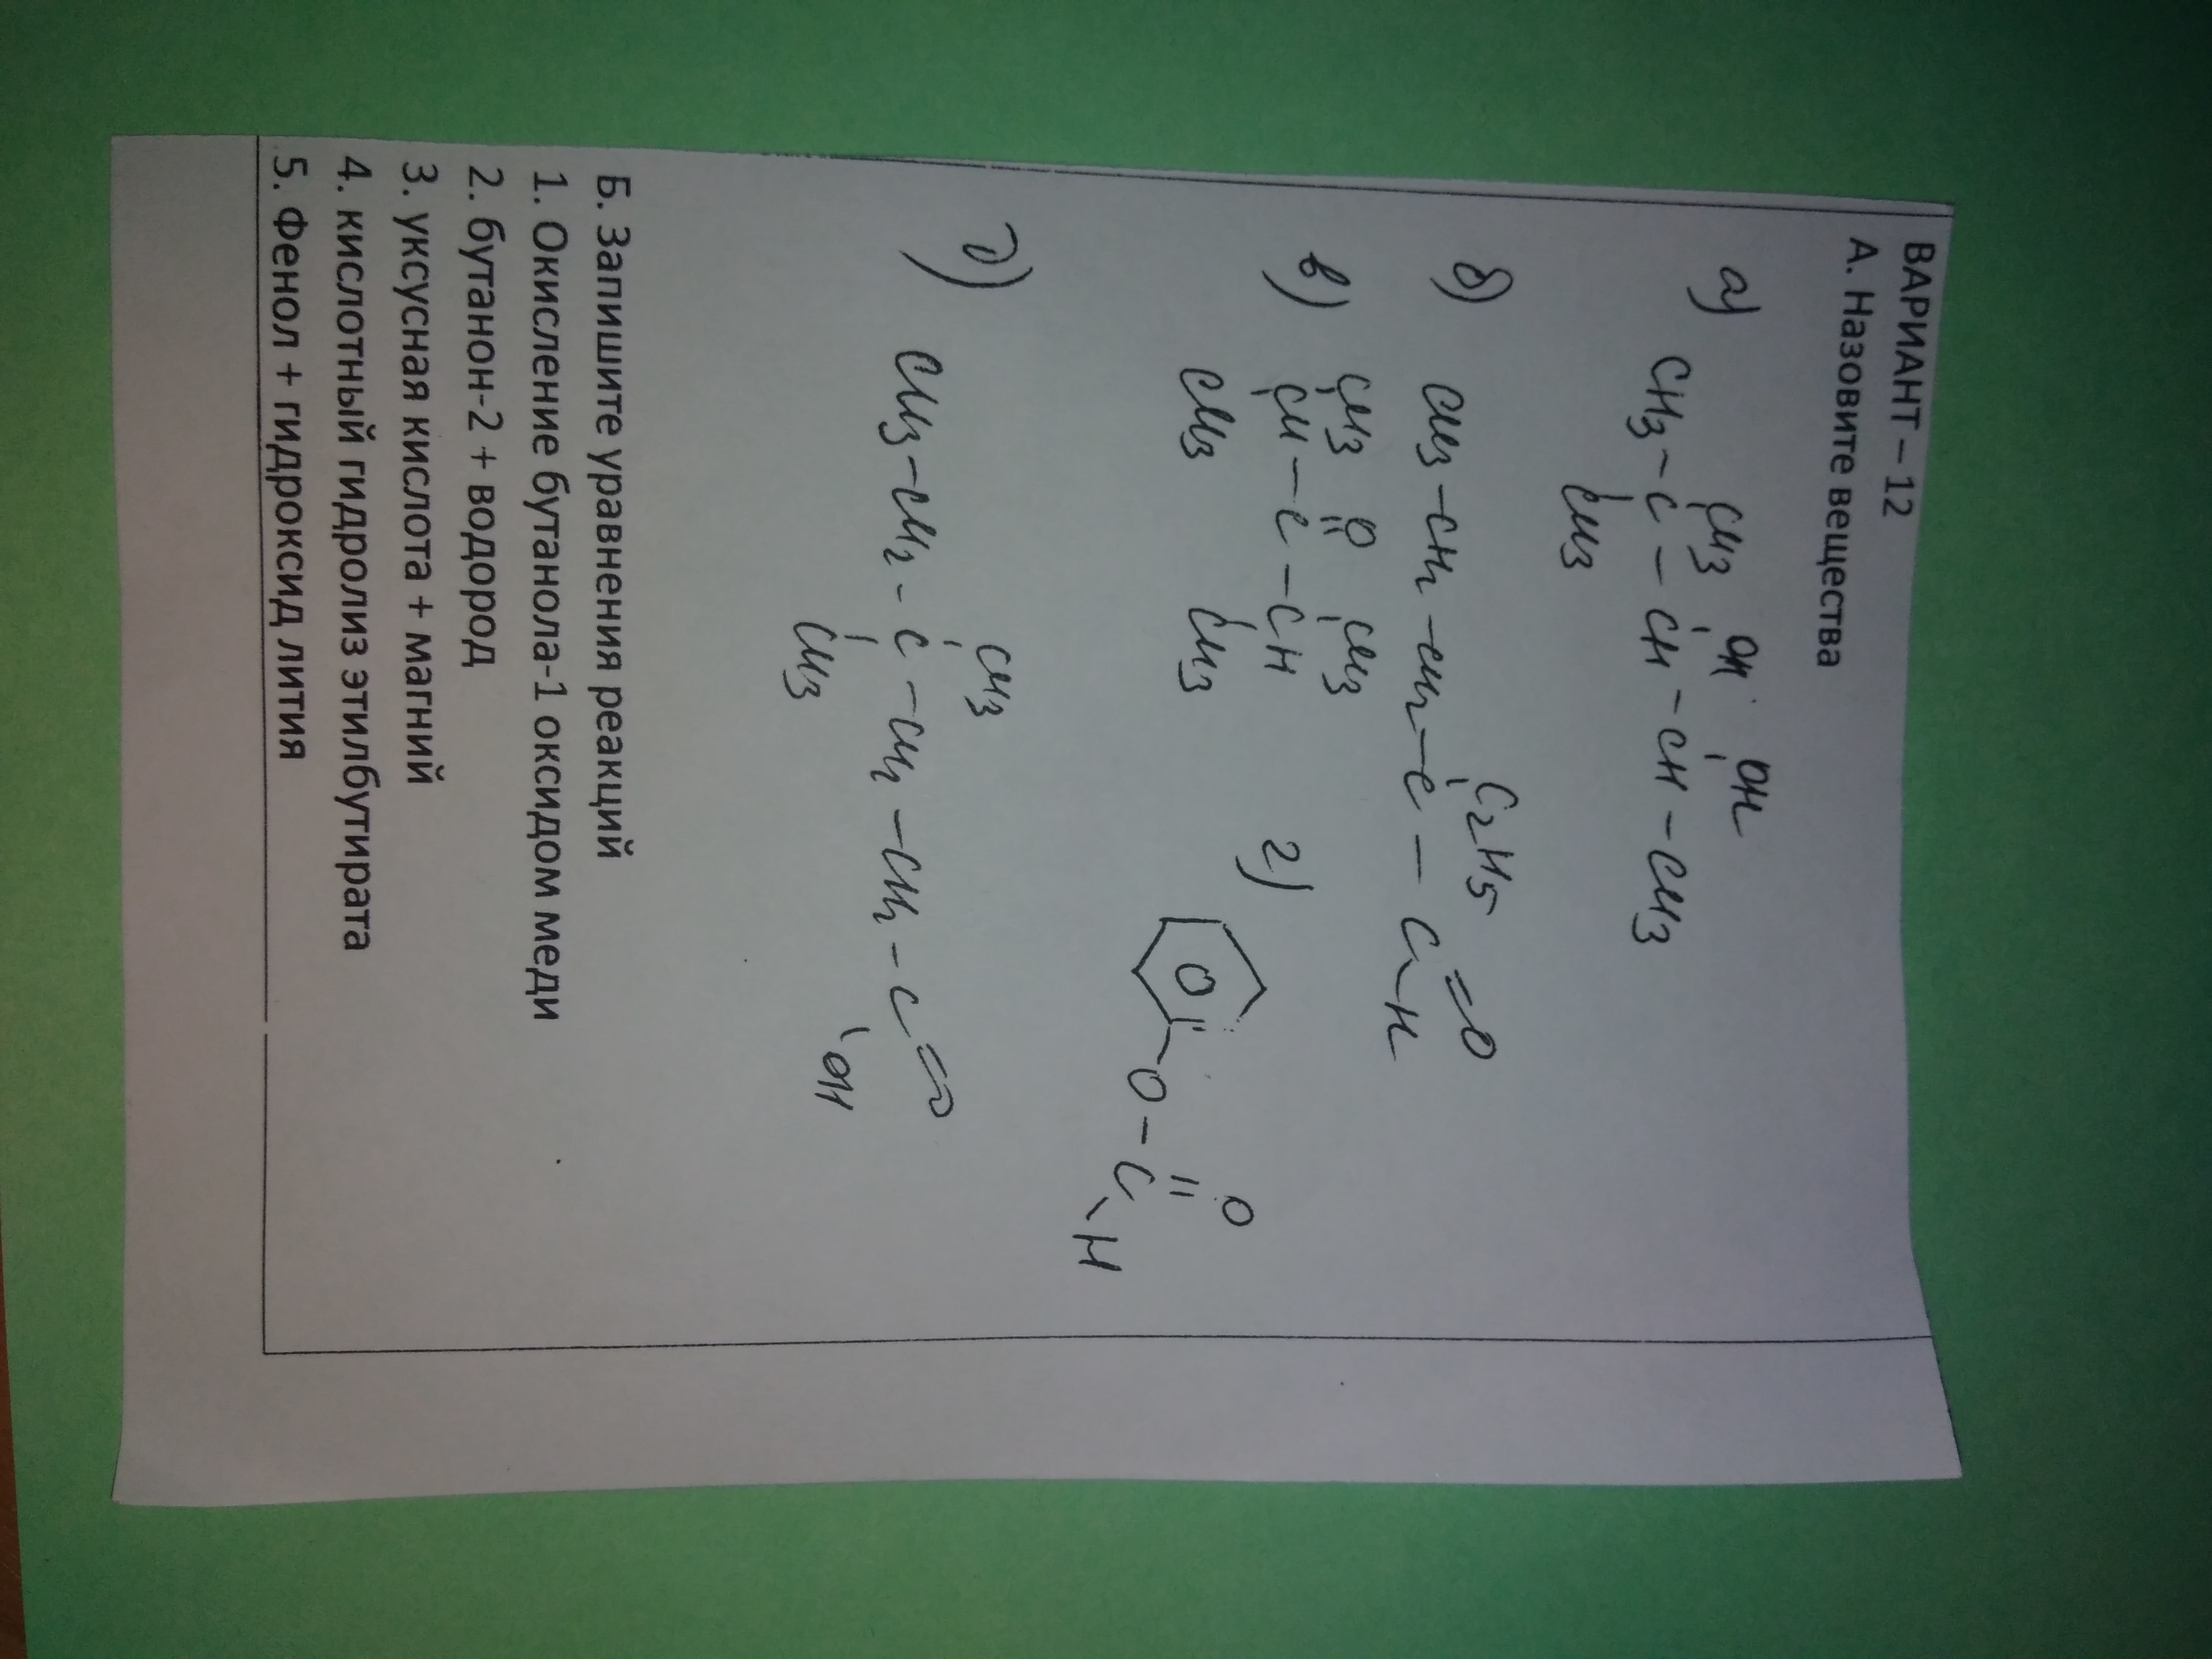 ВАРИАНТ – 12
А. Назовите вещества
CH3 OH OH
а) CH3 – C – CH – CH – CH3
CH3
C2H5
б) CH3 – CH2 – CH2 – C – C = O
H
в) CH3 O CH3
CH – C – CH
CH3 CH3
г) O – C = O
H
CH3
д) CH3 – CH2 – C – CH2 – CH2 – C = O
CH3 OH
Б. Запишите уравнения реакций
1. Окисление бутанола-1 оксидом меди
2. бутанон-2 + водород
3. уксусная кислота + магний
4. кислотный гидролиз этилбутирата
5. Фенол + гидроксид лития